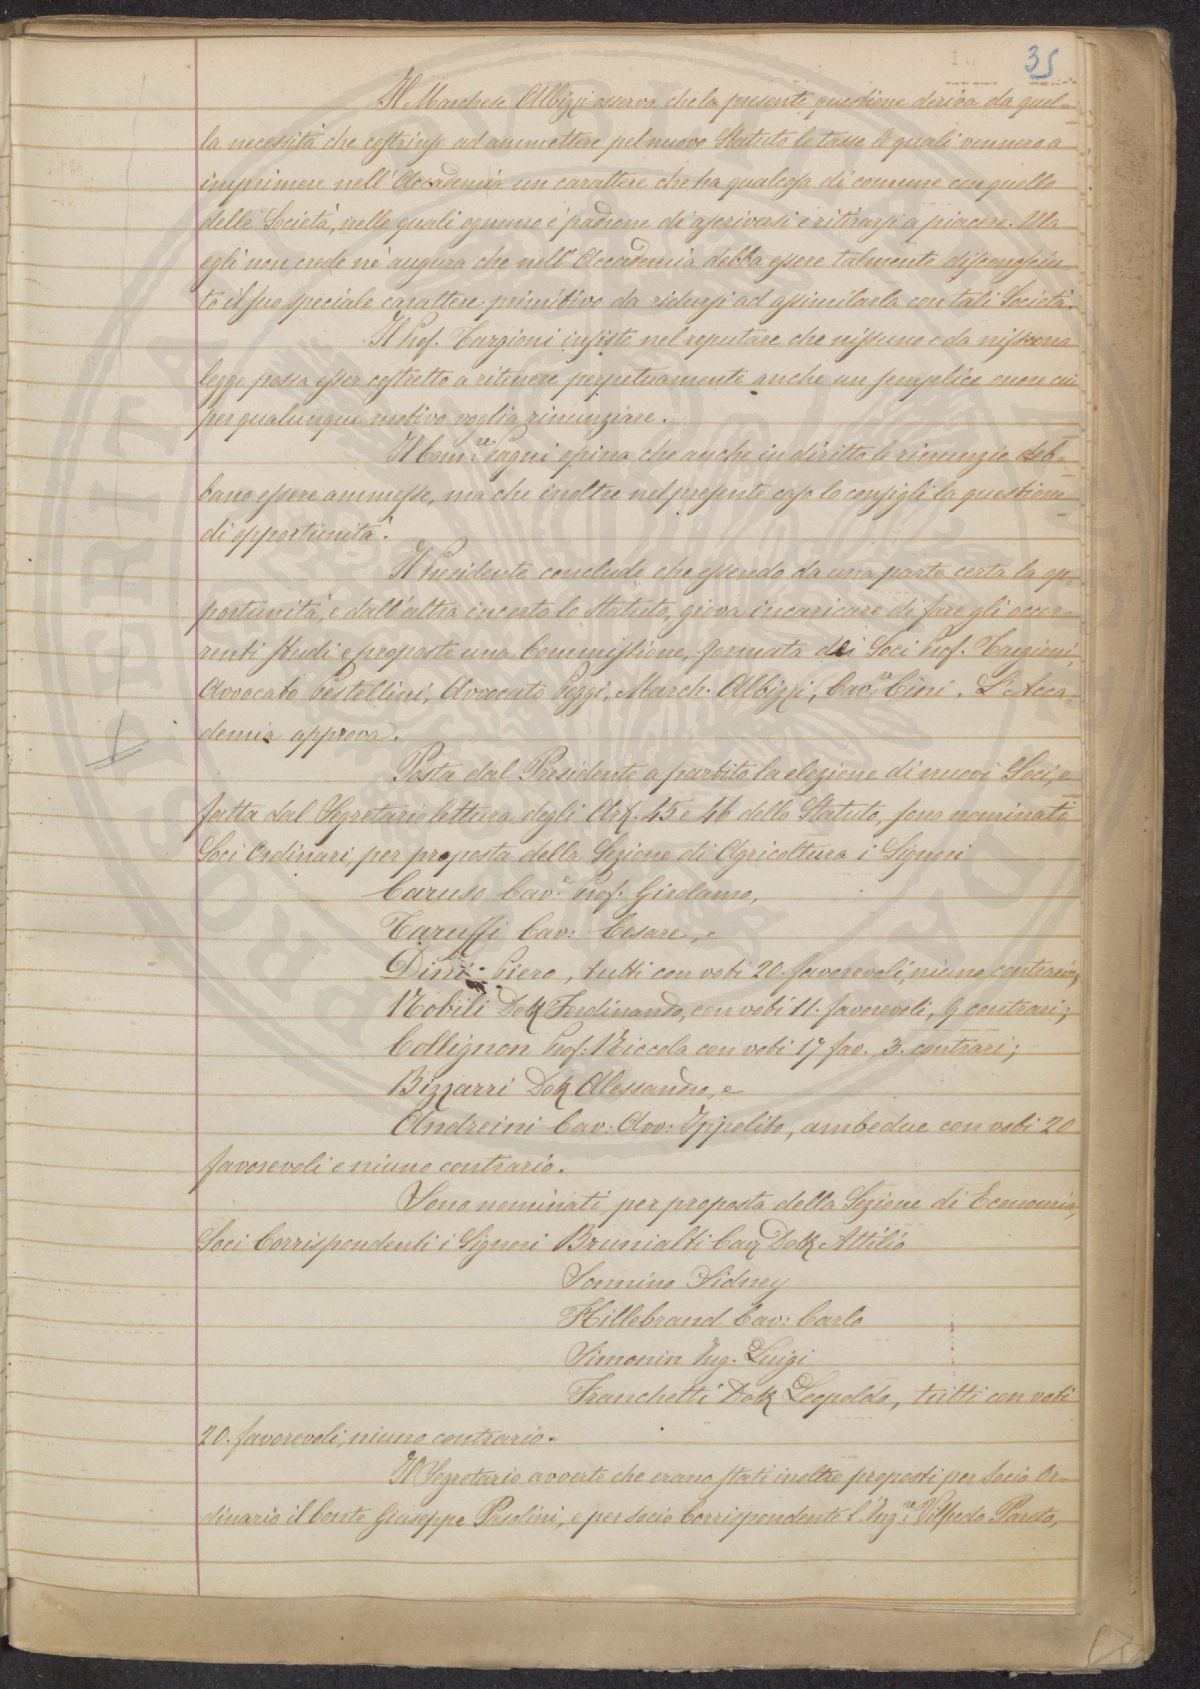 35
Il Marchese Albizzi osserva che la presente questione deriva da quel=
la necessità che costrinse ad ammettere pel nuovo Statuto le tasse le quali vennero a
imprimere nell'Accademia un carattere che ha qualcosa di comune con quello
delle Società, nelle quali ognuno è padrone di ascriversi e ritirarsi a piacere. Ma
egli non crede nè augura che nell'Accademia debba essere talmente disconosciu
to il suo speciale carattere primitivo da ridursi ad assimilarla con tali Società.
Il Prof. Targioni insiste nel reputare che nissuno e da nissuna
legge possa esser costretto a ritenere perpetuamente anche un semplice onore cui
per qualunque motivo voglia rinunziare.
Il Com.re Pagni opina che anche in diritto le rinunzie deb=
bano essere ammesse, ma che inoltre nel presente caso lo consigli la questione
di opportunità.
Il Presidente conclude che essendo da una parte certa la op=
portunità, e dall'altra incerto lo Statuto, giova incaricare di fare gli occor=
renti studi e proposte una Commissione, formata dei Soci Prof. Targioni,
Avvocato Pestellini, Avvocato Poggi, March. Albizzi, Cav.re Cini. L'Acca=
demia approva.
Posta dal Presidente a partito la elezione di nuovi Soci, e
fatta dal Segretario lettura degli Art. 45 e 46 dello Statuto, sono nominati
Soci Ordinari, per proposta della Sezione di Agricoltura i Signori
Caruso Cav.e Prof. Girolamo,
Taruffi Cav: Cesare, e
Dini Piero, tutti con voti 20. favorevoli, niuno contrario;
Nobili Dott Ferdinando, con voti 11. favorevoli, 9 contrari;
Collignon Prof. Niccola con voti 17 fav. 3. contrari;
Bizzarri Dott Alessandro, e
Andreini Cav: Avv: Ippolito, ambedue con voti 20
favorevoli e niuno contrario.
Sono nominati, per proposta della Sezione di Economia,
Soci Corrispondenti i Signori Brunialti Cav Dott Attilio
Sonnino Sidney
Hillebrand Cav: Carlo
Simonin Ing. Luigi
Franchetti Dott Leopoldo, tutti con voti
20. favorevoli, niuno contrario.
Il Segretario avverte che erano stati inoltre proposti per Socio Or=
dinario il Conte Giuseppe Pasolini, e per socio Corrispondente l'Ing.re Vilfredo Pareto,